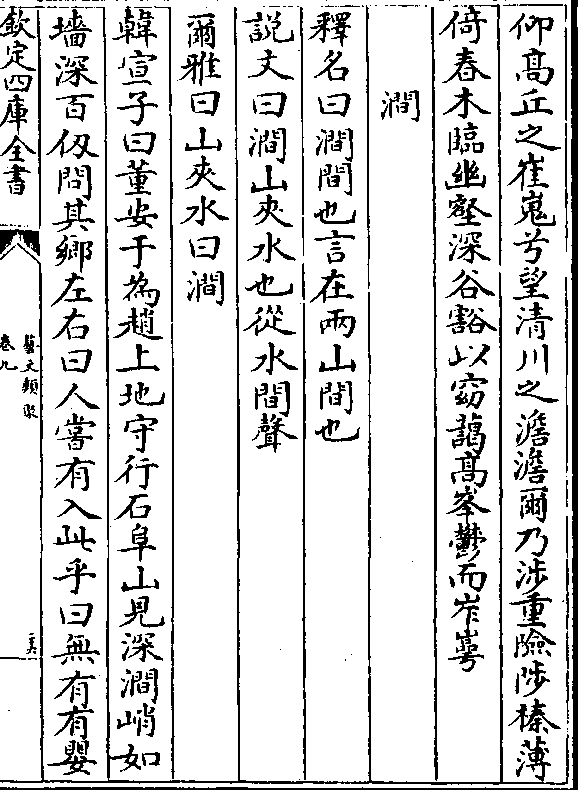 仰髙丘之崔嵬兮望清川之澹澹爾乃涉重險陟榛薄
倚春木臨幽壑深谷豁以窈藹髙峯鬱而岝㟧
澗
釋名曰澗間也言在兩山間也
説文曰澗山夾水也從水間聲
爾雅曰山夾水曰澗
韓宣子曰董安于為趙上地守行石阜山見深澗峭如
墻深百仭問其鄉左右曰人嘗有入此乎曰無有有嬰
欽定四庫全書
藝文類聚
卷九